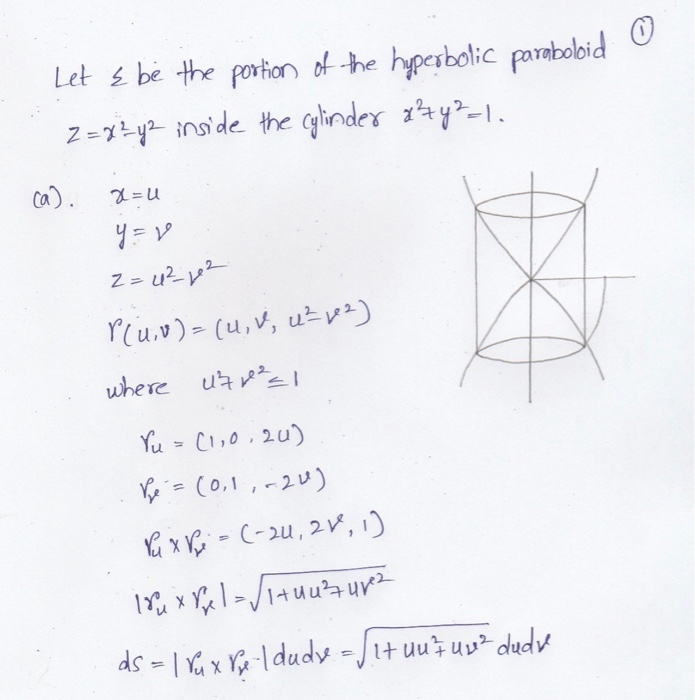 ①
Let Σ be the portion of the hyperbolic paraboloid
z = x² - y² inside the cylinder x² + y² = 1.
(a). x = u
y = v
z = u² - v²
r(u,v) = (u, v, u² - v²)
where u² + v² ≤ 1
r_u = (1, 0, 2u)
r_v = (0, 1, -2v)
r_u × r_v = (-2u, 2v, 1)
|r_u × r_v| = √(1 + 4u² + 4v²)
ds = |r_u × r_v| du dv = √(1 + 4u² + 4v²) du dv